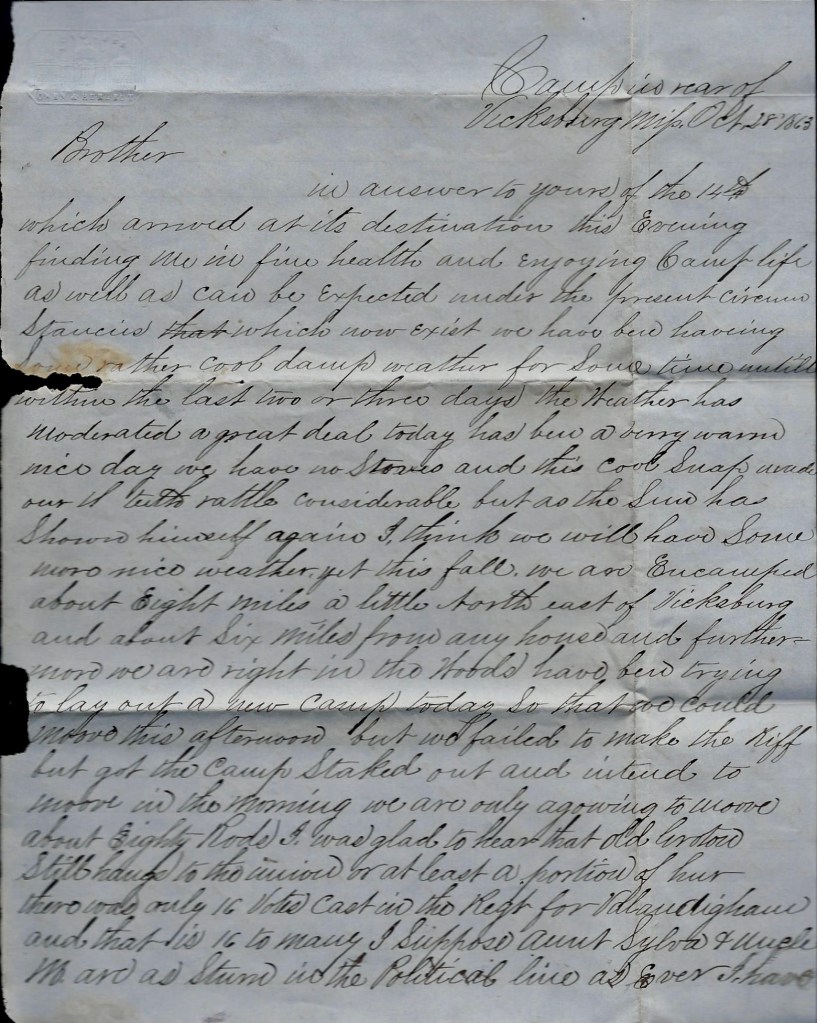 Camp in rear of
Vicksburg Miss. Oct. 28th 1863
Brother
in answer to yours of the 14th
which arrived at its destination this Evening
finding me in fine health and enjoying Camp life
as well as can be Expected under the present circum
stancies that which now exist we have ben haveing
some rather cool damp weather for Some time untill
within the last two or three days the Weather has
moderated a great deal today has ben a verry warm
nice day we have no Stoves and this cool Snap made
our teeth rattle considerable but as the Sun has
Shown himself again I, think we will have Some
more nice weather, yet this fall. we are Encamped
about Eight miles a little North east of Vicksburg
and about Six miles from any house and further=
more we are right in the Woods have ben trying
to lay out a new camp today So that we could
moove this afternoon but we failed to make the Riff
but got the camp Staked out and intend to
moove in the morning we are only agowing to moove
about Eighty Rods I. was glad to hear that old Groton
Still hangs to the union or at least a portion of hur
there was only 16 Votes cast in the Regt for Valandigham
and that is 16 to many I Suppose Aunt Sylva & Uncle
M. are as Sturn in the Political line as Ever I. have